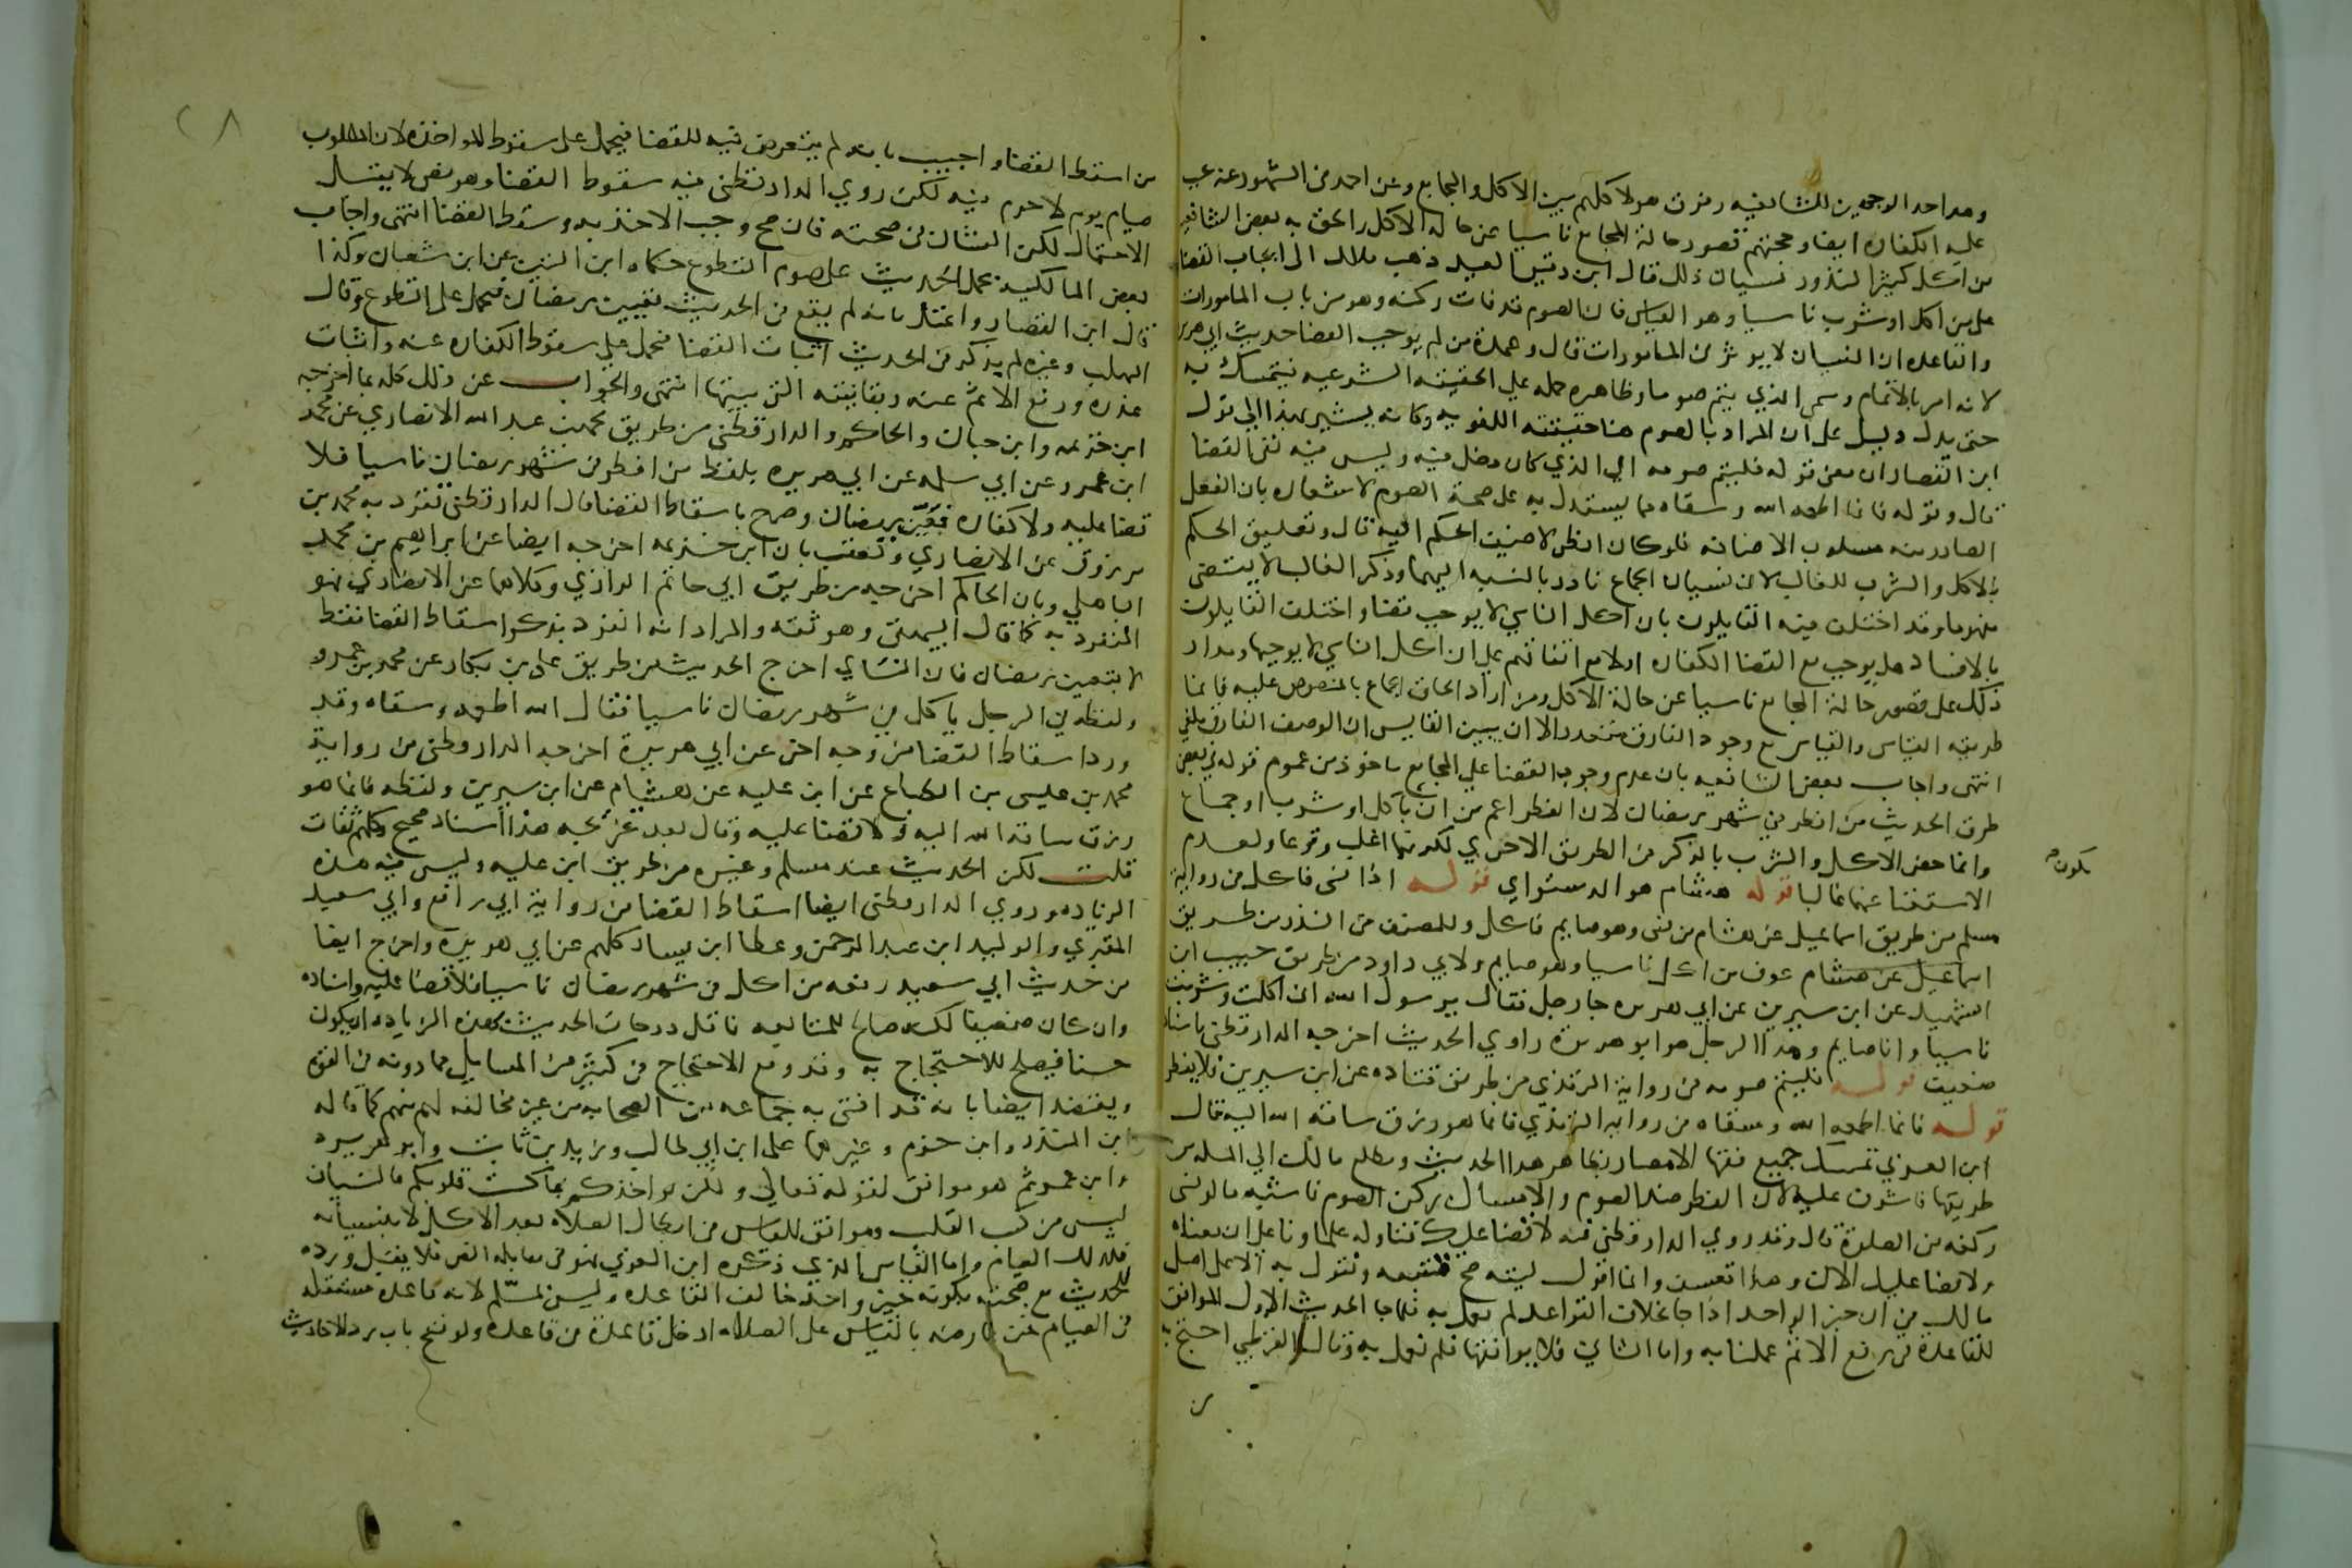 وهو احد الوجهين للشافعيه وفرق هولا كلهم بين الاكل والجماع وعن احمد في المشهور عنه تجب
عليه الكفاره ايضا وحجتهم قصور حالة المجامع ناسيا عن حاله الاكل والحق به بعض الشافعيه
من اكل كثيرا لندور نسيان ذلك قال ابن دقيق العيد ذهب مالك الى ايجاب القضا
على من اكل او شرب ناسيا وهو القياس فان الصوم قد فات ركنه وهو من باب المامورات
والقاعده ان النسيان لا يوثر في المامورات قال وعمدة من لم يوجب القضا حديث ابي هريره
لانه امر بالاتمام وسمى الذي يتم صوما وظاهره حمله على الحقيقة الشرعيه فيتمسك به
حتى يدل دليل على ان المراد بالصوم هنا حقيقته اللغويه وكانه يشير بهذا الى قول
ابن القصار ان معنى قوله فليتم صومه اي الذي كان دخل فيه وليس فيه نفي القضا
قال وقوله فانما اطعمه الله وسقاه مما يستدل به على صحة الصوم لاشعاره بان الفعل
الصادر منه مسلوب الاضافه فلو كان افطر لاضيف الحكم اليه قال وتعليق الحكم
بالاكل والشرب للغالب لان نسيان الجماع نادر بالنسبه اليهما وذكر الغالب لا يقتضي
مفهوما وقد اختلف فيه القايلون بان اكل الناسي لا يوجب قضا واختلف القايلون
بالافساد هل يوجب مع القضا الكفاره اولا مع اتفاقهم على ان اكل الناسي لا يوجبها ومدار
ذلك على قصور حالة المجامع ناسيا عن حالة الاكل ومن اراد الحاق الجماع بالمنصوص عليه فانما
طريقه القياس والقياس مع وجود الفارق متعذر الا ان يبين القايس ان الوصف الفارق ملغى
انتهى واجاب بعض الشافعيه بان عدم وجوب القضا على المجامع ماخوذ من عموم قوله في بعض
طرق الحديث من افطر في شهر رمضان لان الفطر اعم من ان ياكل او شرب او جماع
وانما خص الاكل والشرب بالذكر في الطريق الاخرى لكونهما اغلب وقوعا ولعدم
يكون
الاستغنا عنهما غالبا قوله هشام هو الدستواي قوله اذا نسي فاكل في رواية
مسلم من طريق اسماعيل عن هشام من نسي وهو صايم فاكل وللمصنف في النذر من طريق
اسماعيل عن هشام عوف من اكل ناسيا وهو صايم ولابي داود من طريق حبيب ابن
الشهيد عن ابن سيرين عن ابي هريره جا رجل فقال يرسول الله اني اكلت وشربت
ناسيا وانا صايم وهذا الرجل هو ابو هريرة راوي الحديث اخرجه الدارقطني باسناد
ضعيف قوله فليتم صومه في رواية الترمذي من طريق قتاده عن ابن سيرين فلا يفطر
قوله فانما اطعمه الله وسقاه في رواية الترمذي فانما هو رزق ساقه الله اليه قال
ابن العربي تمسك جميع فقها الامصار بظاهر هذا الحديث وتطلع مالك الى المساله من
طريقها فاشرف عليه لان الفطر ضد الصوم والامساك ركن الصوم فاشبه ما لو نسي
ركعه من الصلوة قال وقد روى الدارقطني فيه لا قضا عليك فتاوله علماونا على ان معناه
ولا قضا عليك الان وهذا تعسف وانما اقول ليته صح فنتبعه ونقول به الا على اصل
مالك في ان خبر الواحد اذا جا بخلاف القواعد لم يعمل به فلما جا الحديث الاول الموافق
للقاعدة في رفع الاثم عملنا به واما الثاني فلا يوافقها فلم نعمل به وقال القرطبي احتج به
من
٢٨
من اسقط القضا واجيب بانه لم يتعرض فيه للقضا فيحمل على سقوط المواخذه لان المطلوب
صيام يوم لا خرم فيه لكن روى الدارقطني فيه سقوط القضا وهو نص لا يقبل
الاحتمال لكن الشان في صحته فان صح وجب الاخذ به وسقط القضا انتهى واجاب
بعض المالكيه بحمل الحديث على صوم التطوع حكاه ابن التين عن ابن شعبان وكذا
قال ابن القصار واعتذر بانه لم يقع في الحديث تعيين رمضان فيحمل على التطوع وقال
المهلب وغيره لم يذكر في الحديث اثبات القضا فيحمل على سقوط الكفاره عنه واثبات
عذره ورفع الاثم عنه وبقا نيته التي بيتها انتهى والجواب عن ذلك كله بما اخرجه
ابن خزيمه وابن حبان والحاكم والدارقطني من طريق محمد بن عبد الله الانصاري عن محمد
ابن عمرو عن ابي سلمه عن ابي هريره بلفظ من افطر في شهر رمضان ناسيا فلا
قضا عليه ولا كفاره فعين رمضان وصرح باسقاط القضا قال الدارقطني تفرد به محمد بن
مرزوق عن الانصاري وتعقب بان ابن خزيمه اخرجه ايضا عن ابراهيم بن محمد
الباهلي وبان الحاكم اخرجه من طريق ابي حاتم الرازي وكلاهما عن الانصاري فهو
المنفرد به كما قال البيهقي وهو ثقه والمراد انه انفرد بذكر اسقاط القضا فقط
لا بتعيين رمضان فان النساي اخرج الحديث من طريق علي بن بكار عن محمد بن عمرو
ولفظه في الرجل ياكل في شهر رمضان ناسيا فقال الله اطعمه وسقاه وقد
ورد اسقاط القضا من وجه اخر عن ابي هريرة اخرجه الدارقطني من رواية
محمد بن عيسى بن الطباع عن ابن عليه عن هشام عن ابن سيرين ولفظه فانما هو
رزق ساقه الله اليه ولا قضا عليه وقال بعد تخريجه هذا اسناد صحيح وكلهم ثقات
قلت لكن الحديث عند مسلم وغيره من طريق ابن عليه وليس فيه هذه
الزياده وروى الدارقطني ايضا اسقاط القضا من رواية ابي رافع وابي سعيد
المقبري والوليد ابن عبد الرحمن وعطا ابن يسار كلهم عن ابي هريرة واخرج ايضا
من حديث ابي سعيد رفعه من اكل في شهر رمضان ناسيا فلا قضا عليه واسناده
وان كان ضعيفا لكنه صالح للمتابعه فاقل درجات الحديث بهذه الزياده ان يكون
حسنا فيصلح للاحتجاج به وقد وقع الاحتجاج في كثير من المسايل بما دونه في القوه
ويعتضد ايضا بانه قد افتى به جماعه من الصحابه من غير مخالفه لهم منهم كما قاله
ابن المنذر وابن حزم وغيرهما علي ابن ابي طالب وزيد بن ثابت وابو هريره
وابن عمر ثم هو موافق لقوله تعالى ولكن يواخذكم بما كسبت قلوبكم فالنسيان
ليس من كسب القلب وموافق للقياس في ابطال الصلاه بعمد الاكل لا بنسيانه
فكذلك الصيام واما القياس الذي ذكره ابن العربي فهو في مقابله النص فلا يقبل ورده
للحديث مع صحته بكونه خبر واحد خالف القاعده وليس بمسلم لانه قاعده مستقله
في الصيام فمن عارضه بالقياس على الصلاه ادخل قاعدة في قاعدة ولو فتح باب رد الاحاديث